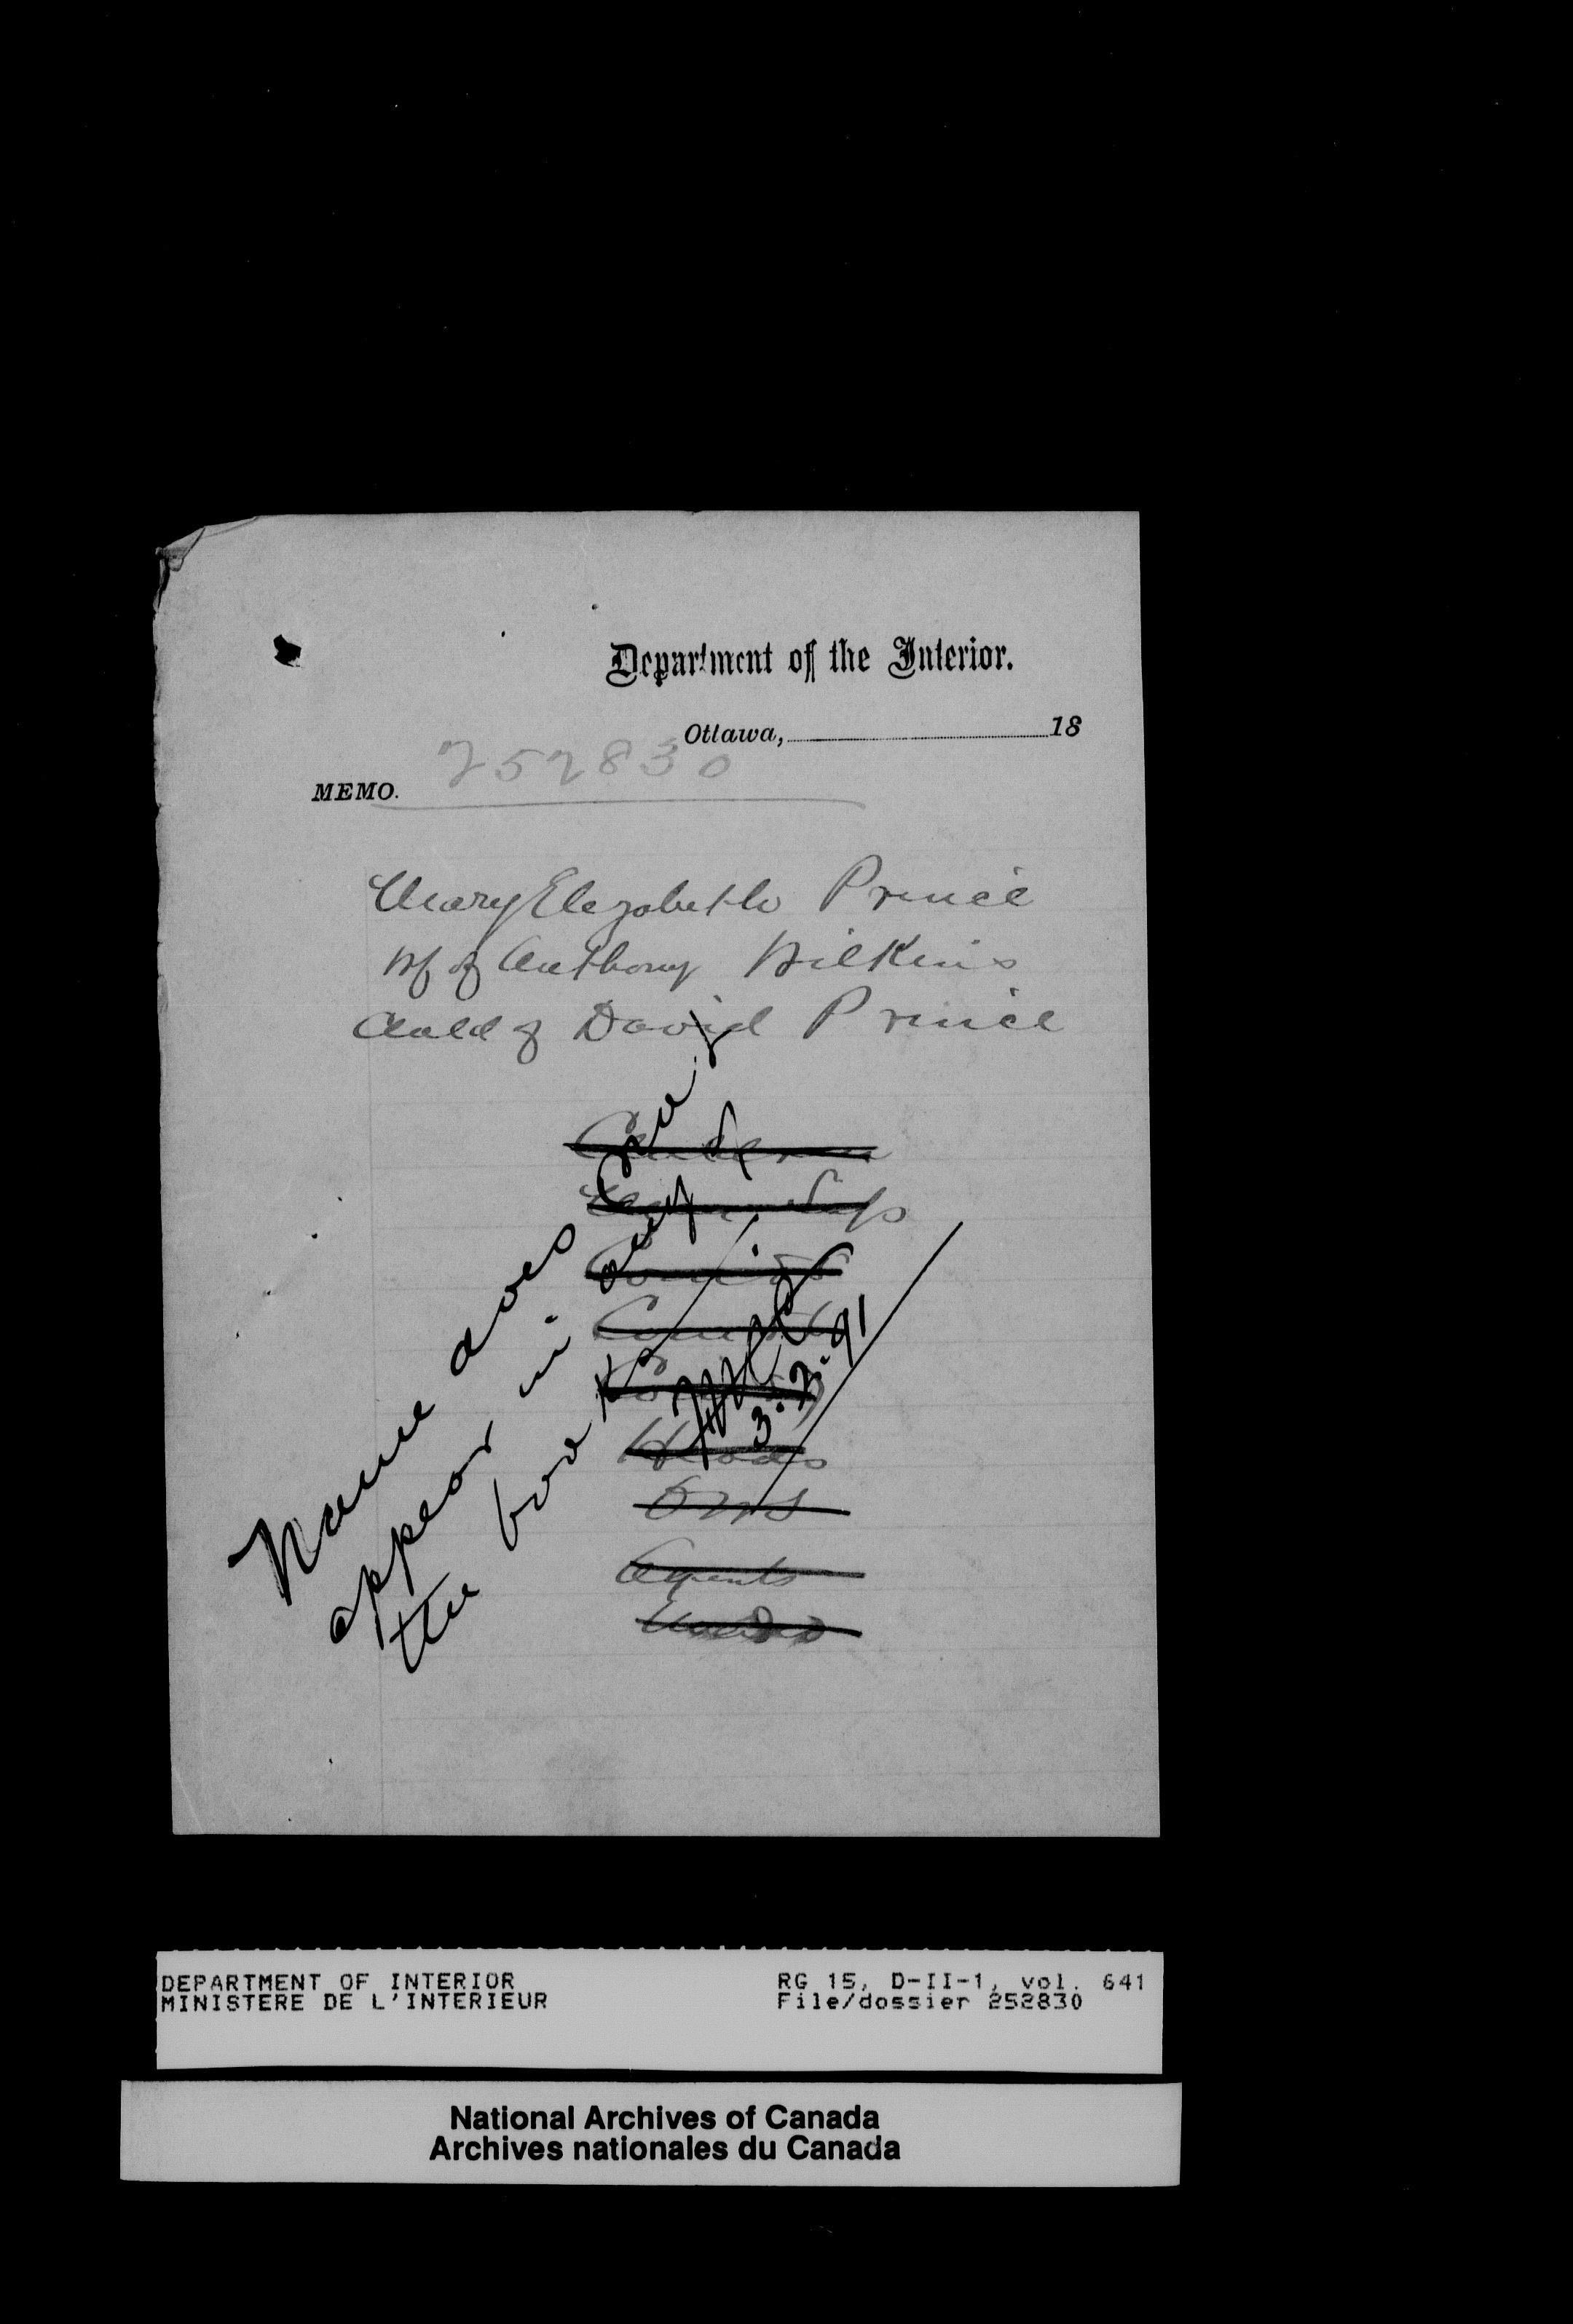 Department of the Interior.
Ottawa, 18
252830
MEMO.
Mary Elizabeth Prince
Wf of Anthony Wilkins
Child of David Prince
Name does not
appear in any of
the books
3.2.91
Heads
Agents
DEPARTMENT OF INTERIOR
MINISTERE DE L'INTERIEUR
RG 15, D-II-1, vol. 641
File/dossier 252830
National Archives of Canada
Archives nationales du Canada